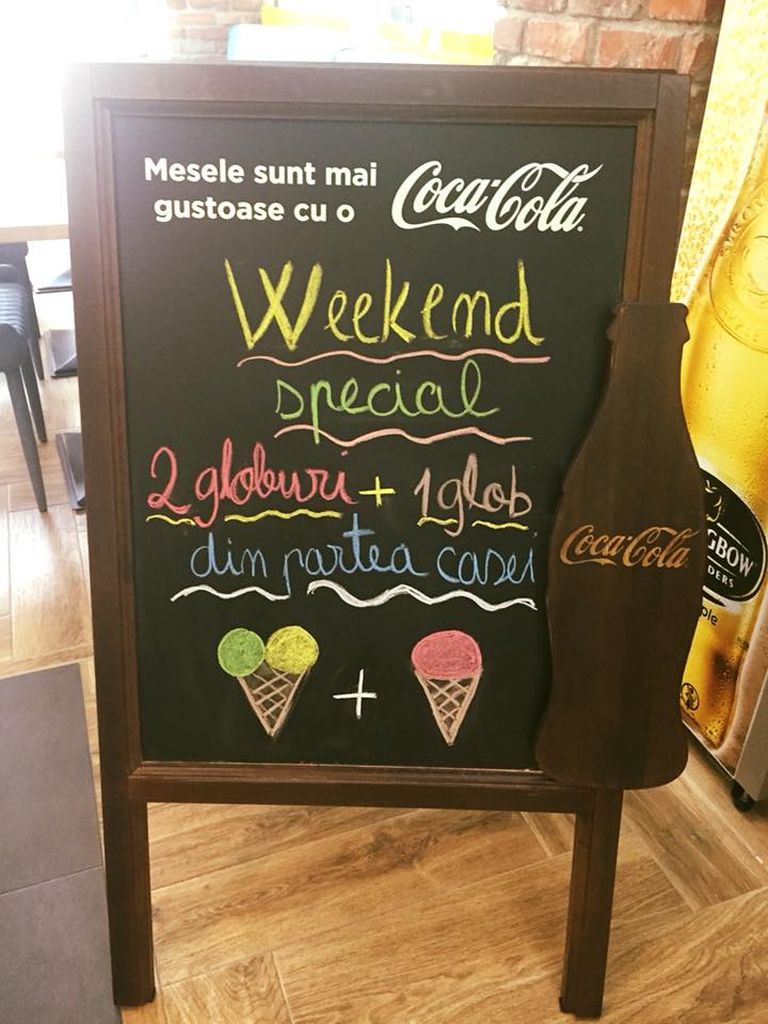 Mesele sunt mai
gustoase cu o
Coca-Cola
Weekend
special
2 globuri + 1 glob
din partea casei
+
Coca-Cola
GBOW
DERS
ple